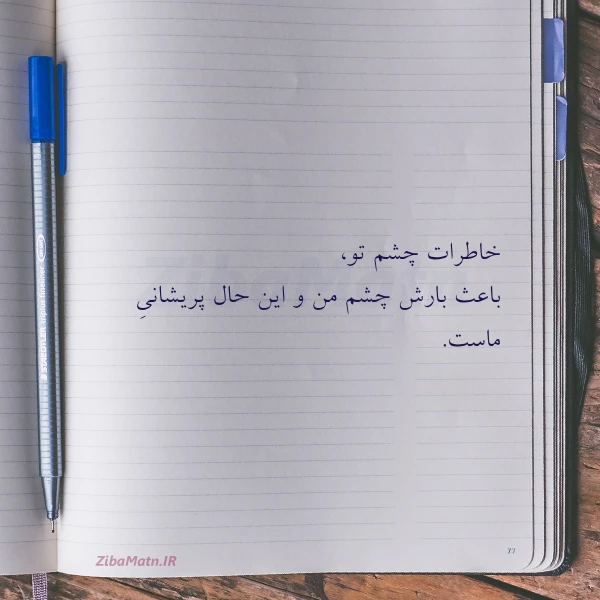 خاطرات چشم تو،
باعث بارش چشم من و این حال پریشانیِ
ماست.
ZibaMatn.IR